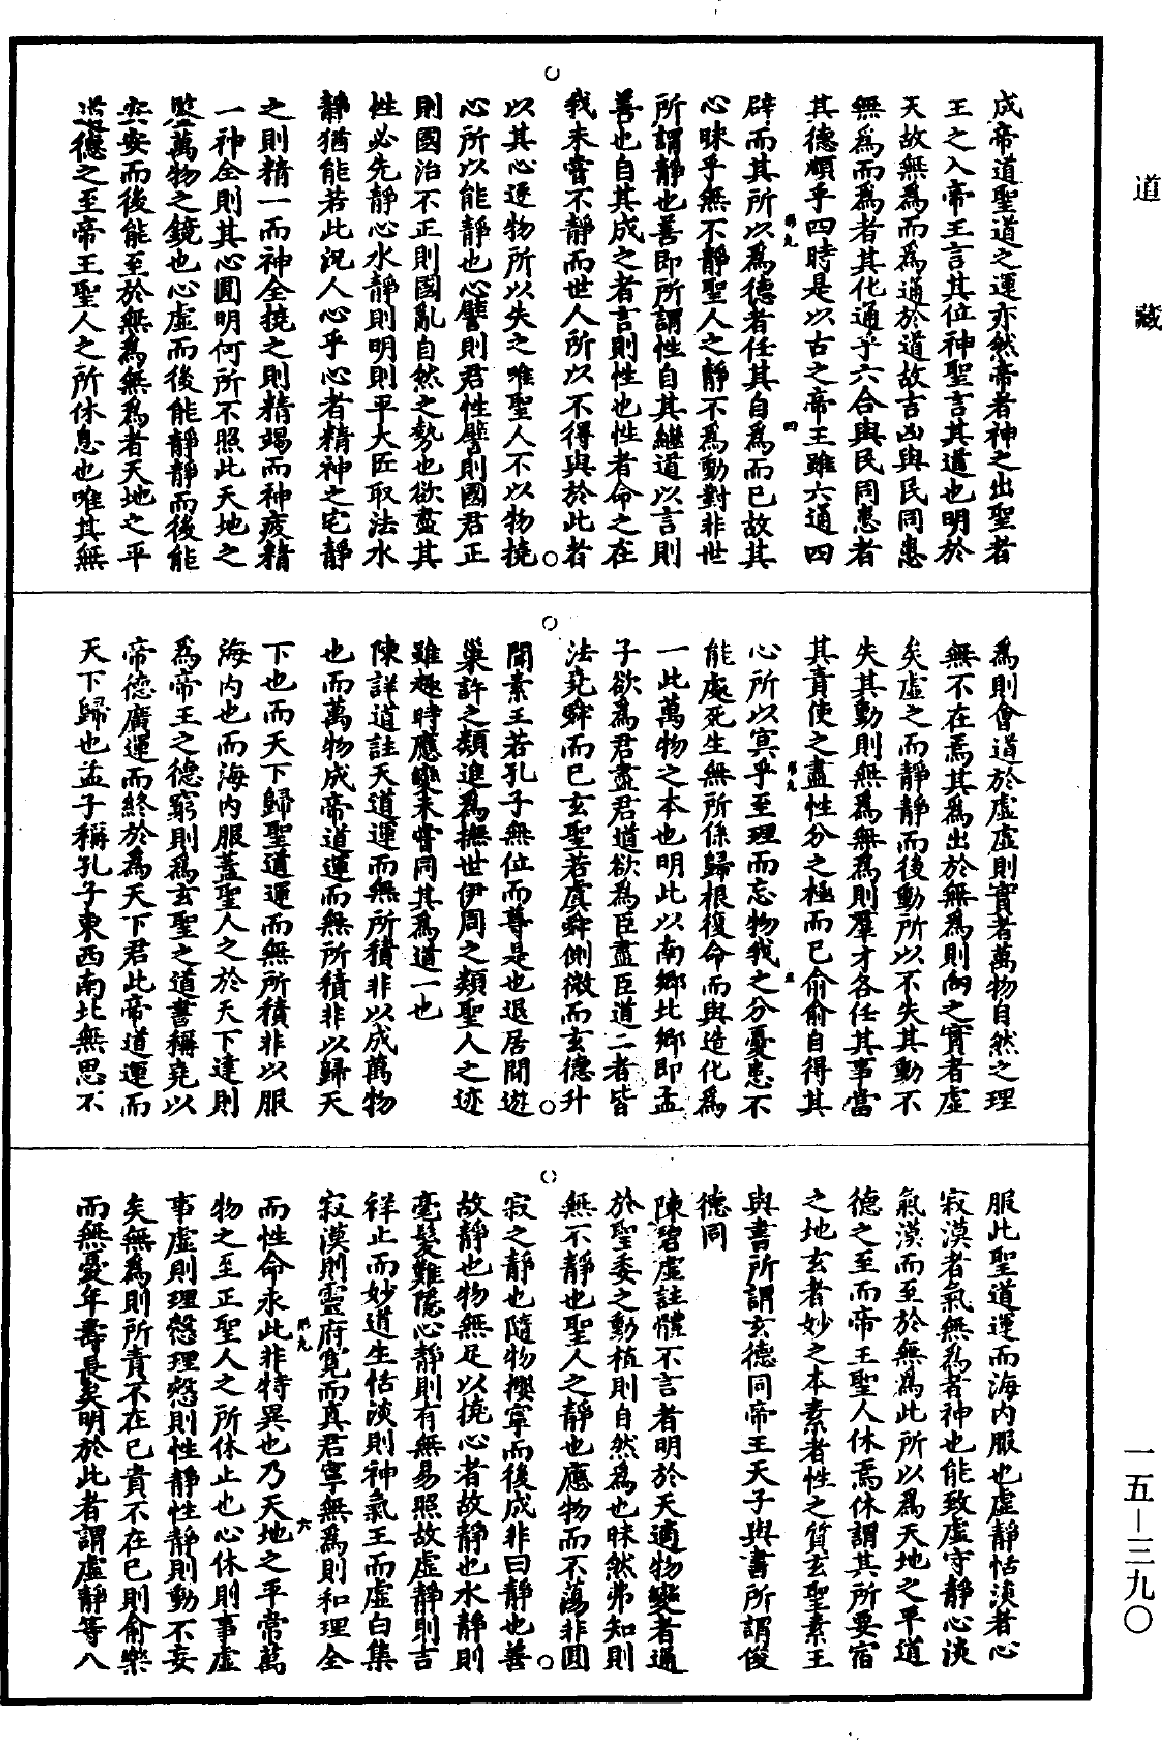 道藏
成帝道聖道之運亦然帝者神之出聖者
王之入帝王言其位神聖言其道也明於
天故無為而為通於道故吉凶與民同患
無為而為者其化通乎六合與民同患者
其德順乎四時是以古之帝王雖六通四
辟而其所以為德者任其自為而已故其
心昧乎無不靜聖人之靜不為動對非世
所謂靜也善即所謂性自其繼道以言則
善也自其成之者言則性也性者命之在
我未嘗不靜而世人所以不得與於此者
以其心逐物所以失之唯聖人不以物撓
心所以能靜也心譬則君性譬則國君正
則國治不正則國亂自然之勢也欲盡其
性必先靜心水靜則明則平大匠取法水
靜猶能若此況人心乎心者精神之宅靜
之則精一而神全撓之則精竭而神疲精
一神全則其心圓明何所不照此天地之
監萬物之鏡也心虛而後能靜靜而後能
安安而後能至於無為無為者天地之平
道德之至帝王聖人之所休息也唯其無
為則會道於虛虛則實者萬物自然之理
無不在焉其為出於無為則向之實者虛
矣虛之而靜靜而後動所以不失其動不
失其動則無為無為則羣才各任其事當
其責使之盡性分之極而已俞俞自得其
心所以冥乎至理而忘物我之分憂患不
能處死生無所係歸根復命而與造化為
一此萬物之本也明此以南鄉北鄉即孟
子欲為君盡君道欲為臣盡臣道二者皆
法堯舜而已玄聖若虞舜側微而玄德升
聞素王若孔子無位而尊是也退居閒遊
巢許之類進為撫世伊周之類聖人之迹
雖趣時應變未嘗同其為道一也
陳詳道註天道運而無所積非以成萬物
也而萬物成帝道運而無所積非以歸天
下也而天下歸聖道運而無所積非以服
海內也而海內服蓋聖人之於天下達則
為帝王之德窮則為玄聖之道書稱堯以
帝德廣運而終於為天下君此帝道運而
天下歸也孟子稱孔子東西南北無思不
服此聖道運而海內服也虛靜恬淡者心
寂漠者氣無為者神也能致虛守靜心淡
氣漠而至於無為此所以為天地之平道
德之至而帝王聖人休焉休謂其所要宿
之地玄者妙之本素者性之質玄聖素王
與書所謂玄德同帝王天子與書所謂俊
德同
陳碧虛註體不言者明於天適物變者通
於聖委之動植則自然為也昧然弗知則
無不靜也聖人之靜也應物而不蕩非圓
寂之靜也隨物攖寧而後成非曰靜也善
故靜也物無足以撓心者故靜也水靜則
毫髮難隱心靜則有無易照故虛靜則吉
祥止而妙道生恬淡則神氣王而虛白集
寂漠則靈府寬而真君寧無為則和理全
而性命永此非特異也乃天地之平常萬
物之至正聖人之所休止也心休則事虛
事虛則理愨理愨則性靜性靜則動不妄
矣無為則所責不在己責不在己則俞樂
而無憂年壽長矣明於此者謂虛靜等八
一五—三九〇